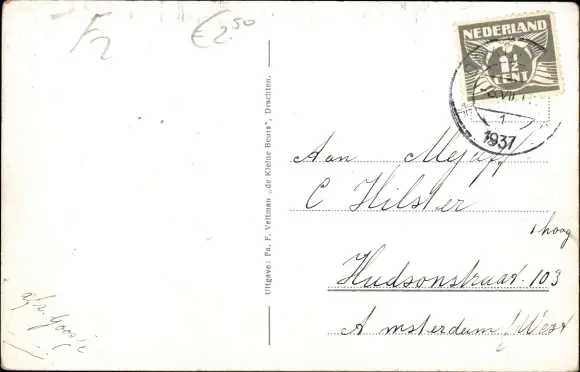 F2
€ 2.50
NEDERLAND
1½
CENT
VII
1
1937
Uitgave: Fa. F. Veltman „de Kleine Beurs", Drachten.
Aan Mejuff
C Hilster
1 hoog
Hudsonstraat. 103
Amsterdam / West